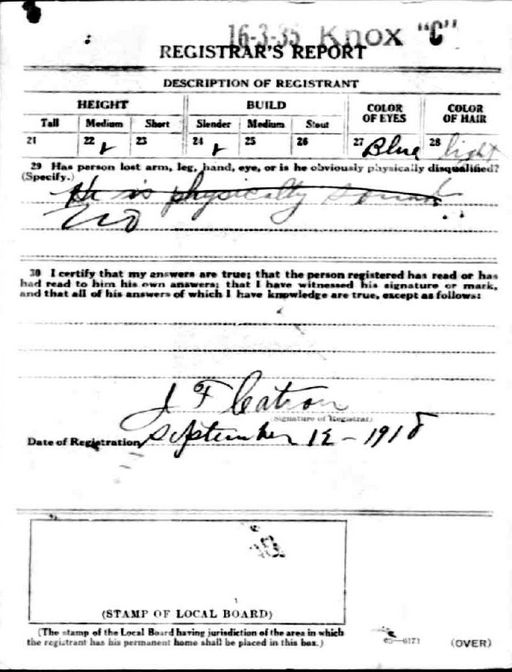 16-3-35 Knox "C"
REGISTRAR'S REPORT
DESCRIPTION OF REGISTRANT
HEIGHT BUILD COLOR OF EYES COLOR OF HAIR
Tall Medium Short Slender Medium Stout
21 22 ✓ 23 24 ✓ 25 26 27 Blue 28 light
29 Has person lost arm, leg, hand, eye, or is he obviously physically disqualified?
(Specify.)
He is physically sound
No
30 I certify that my answers are true; that the person registered has read or has
had read to him his own answers; that I have witnessed his signature or mark,
and that all of his answers of which I have knowledge are true, except as follows:
J F Catron
(Signature of Registrar)
Date of Registration September 12 - 1918
(STAMP OF LOCAL BOARD)
(The stamp of the Local Board having jurisdiction of the area in which
the registrant has his permanent home shall be placed in this box.)
03—6171 (OVER)